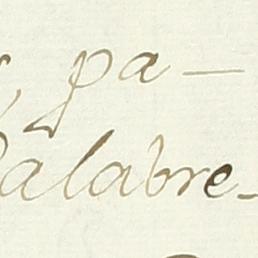 pa —
alabre-